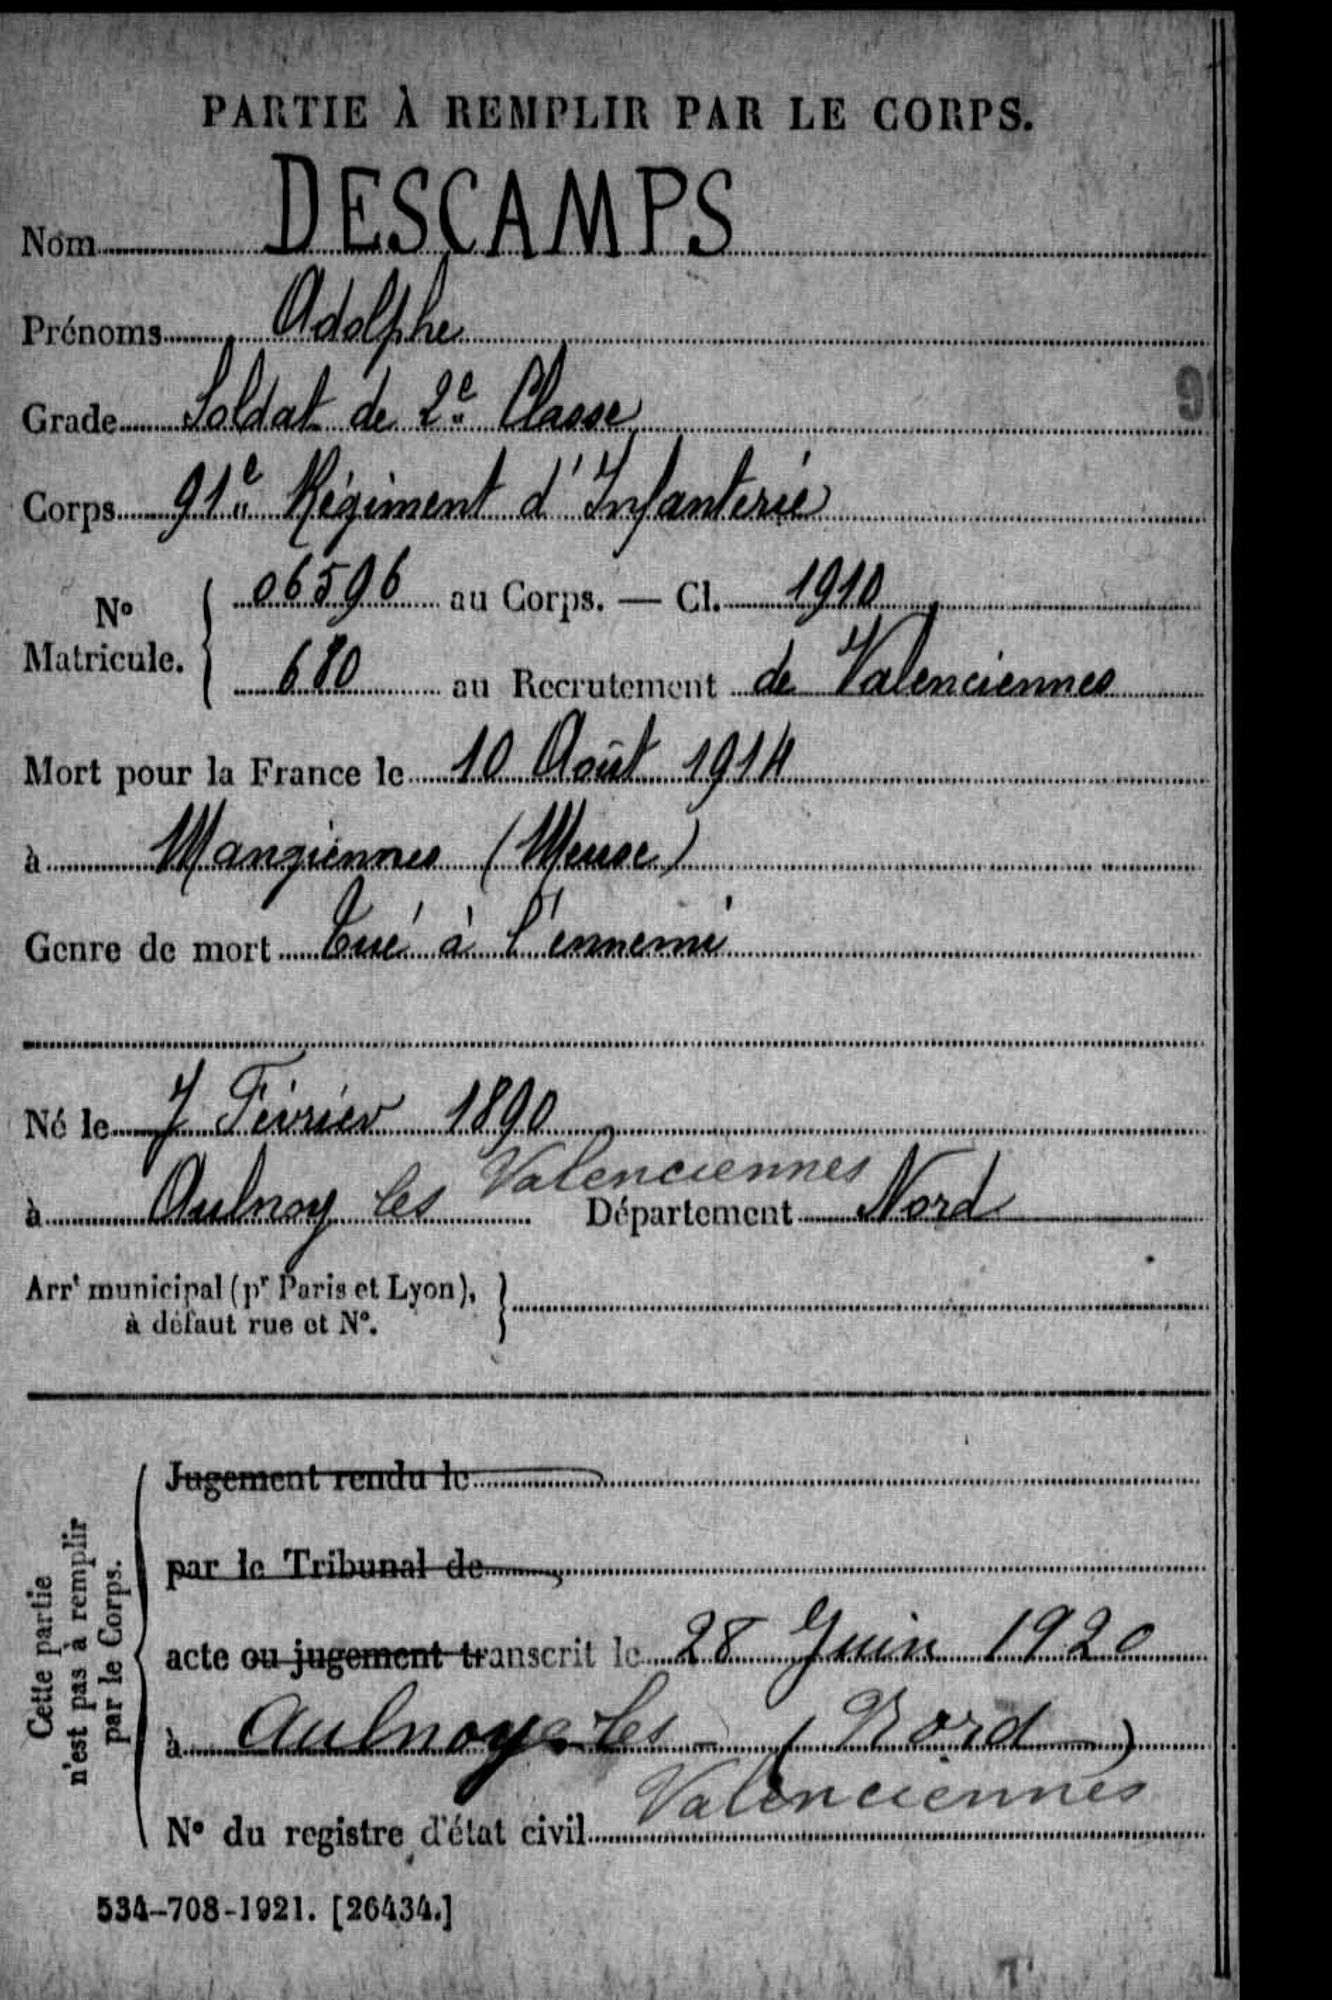 PARTIE À REMPLIR PAR LE CORPS.
Nom DESCAMPS
Prénoms Adolphe
Grade Soldat de 2e Classe
Corps 91e Régiment d'Infanterie
No Matricule. { 06596 au Corps. — Cl. 1910
680 au Recrutement de Valenciennes
Mort pour la France le 10 Août 1914
à Mangiennes (Meuse)
Genre de mort Tué à l'ennemi
Né le 7 Février 1890
à Aulnoy les Valenciennes Département Nord
Arrt municipal (pr Paris et Lyon), }
à défaut rue et No.
Cette partie
n'est pas à remplir
par le Corps.
Jugement rendu le
par le Tribunal de
acte ou jugement transcrit le 28 Juin 1920
à Aulnoy-les- (Nord)
Valenciennes
No du registre d'état civil
534-708-1921. [26434.]